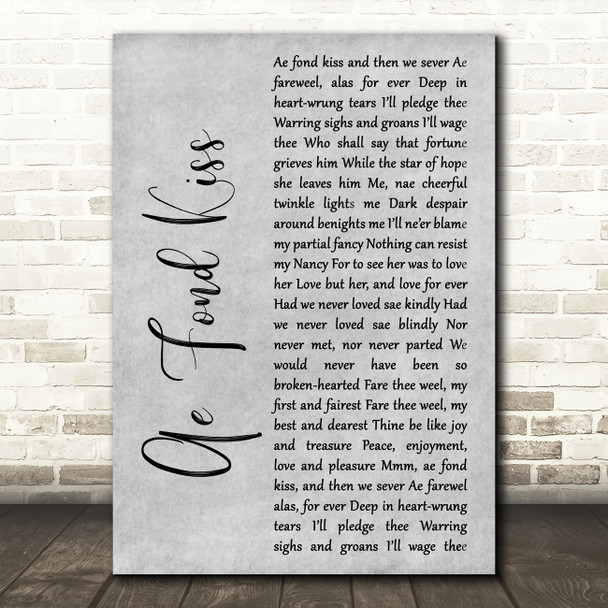 Ae Fond Kiss
Ae fond kiss and then we sever Ae
fareweel, alas for ever Deep in
heart-wrung tears I'll pledge thee
Warring sighs and groans I'll wage
thee Who shall say that fortune
grieves him While the star of hope
she leaves him Me, nae cheerful
twinkle lights me Dark despair
around benights me I'll ne'er blame
my partial fancy Nothing can resist
my Nancy For to see her was to love
her Love but her, and love for ever
Had we never loved sae kindly Had
we never loved sae blindly Nor
never met, nor never parted We
would never have been so
broken-hearted Fare thee weel, my
first and fairest Fare thee weel, my
best and dearest Thine be like joy
and treasure Peace, enjoyment,
love and pleasure Mmm, ae fond
kiss, and then we sever Ae farewel
alas, for ever Deep in heart-wrung
tears I'll pledge thee Warring
sighs and groans I'll wage thee